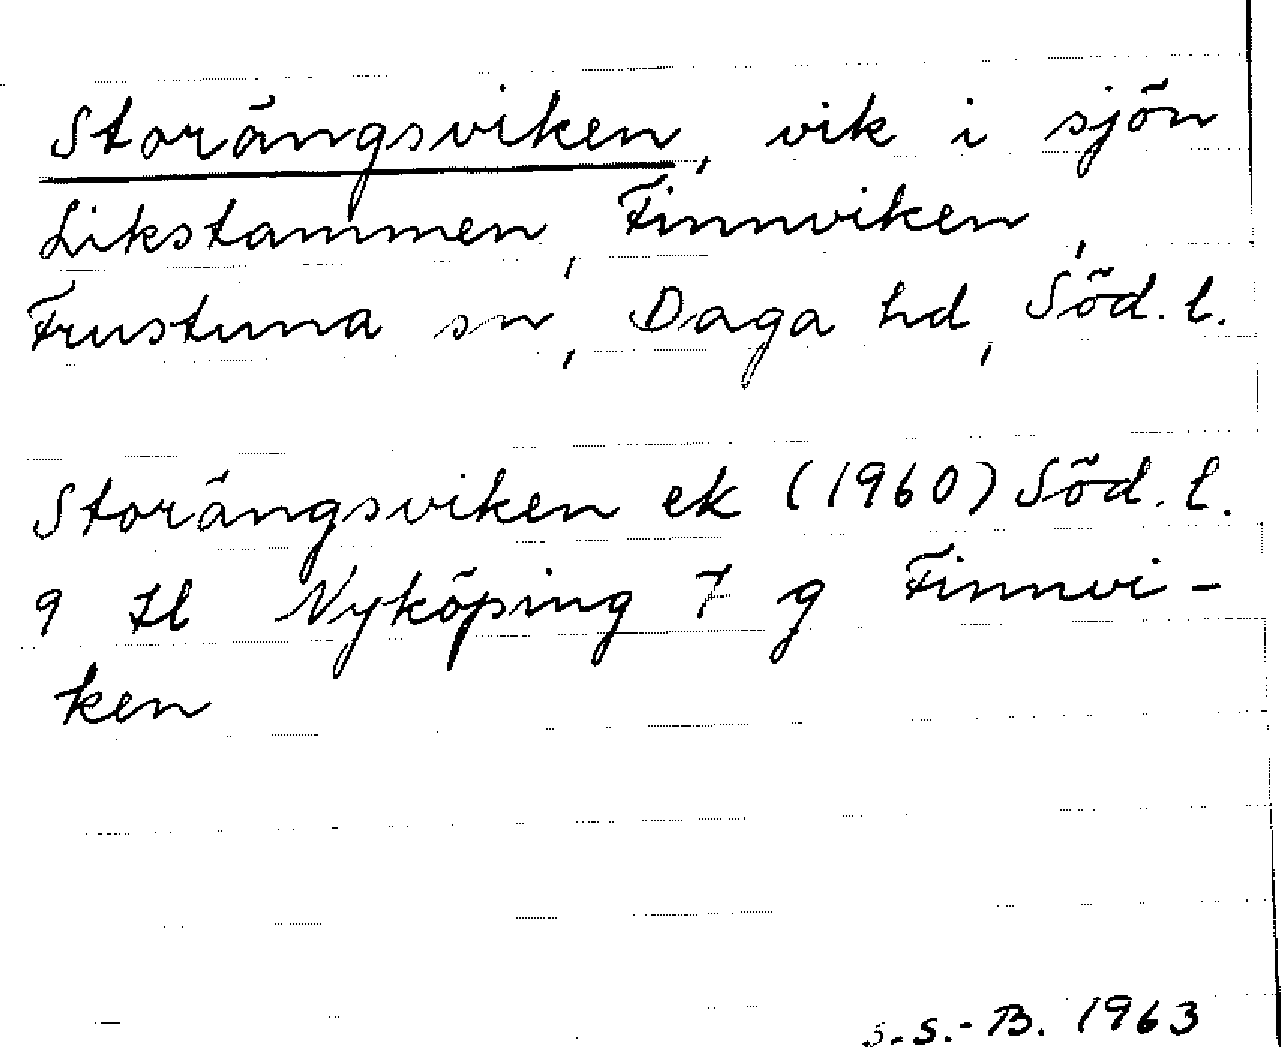 Storängsviken, vik i sjön
Likstammen, Finnviken,
Frustuna sn, Daga hd, Söd. l.
Storängsviken ek (1960) Söd. l.
9 Il Nyköping 7 g Finnvi-
ken
S.S.-B. 1963